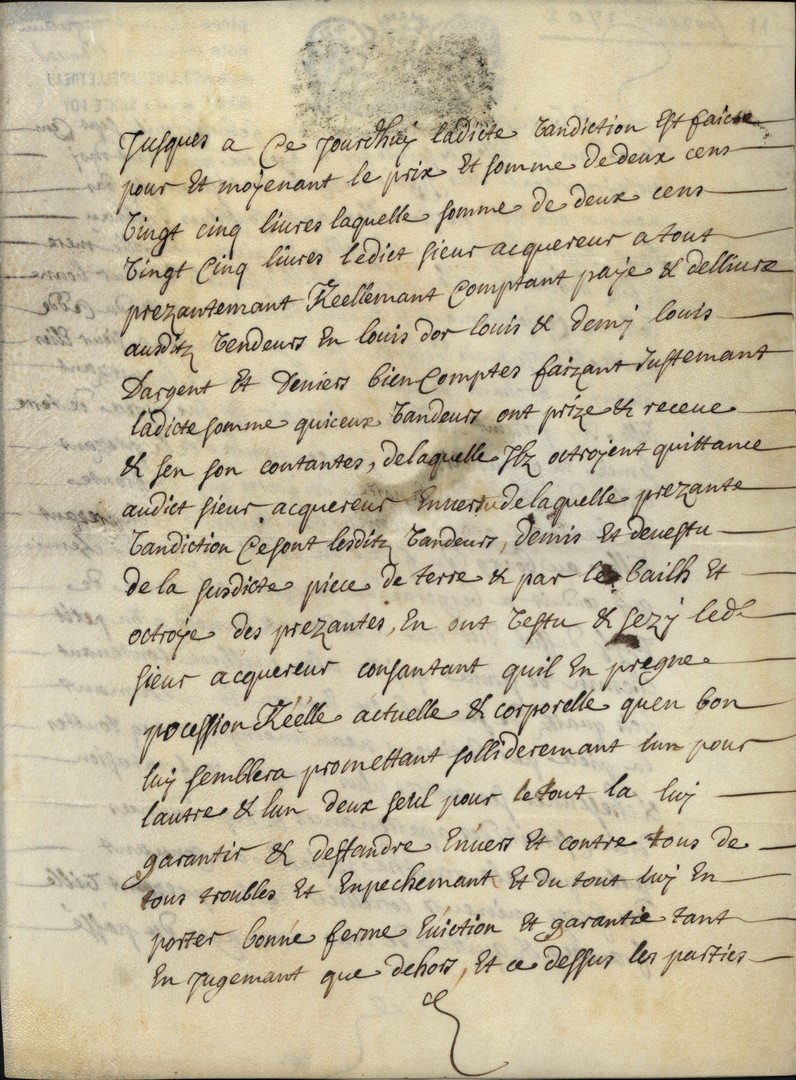 Jusques a Ce jourdhuy ladicte Vandiction Est faicte
pour Et moyenant le prix Et somme de deux cens
Vingt cinq liures laquelle somme de deux cens
Vingt Cinq liures ledict sieur acquereur a tout
prezantemant Reellemant Comptant paye & delliure
ausditz Vendeurs En louis dor louis & demy louis
Dargent Et deniers bien Comptes faizant Justemant
ladicte somme quiceux Vandeurs ont prize & receue
& sen son contantes, de laquelle Ilz octroyent quittance
audict sieur acquereur En vertu de laquelle prezante
Vandiction Ce sont lesditz Vandeurs, demis Et deuestu
de la susdicte piece de terre & par le bailh Et
octroye des prezantes, En ont Vestu & sezy led
sieur acquereur consantant quil En pregne
pocession Réelle actuelle & corporelle quen bon
luy semblera promettant sollideremant lun pour
lautre & lun deux seul pour le tout la luy
garantir & deffandre Enuers Et contre tous de
tous troubles Et Enpechemant Et du tout luy En
porter bonne ferme Euiction Et garantie tant
En Jugemant que dehors, Et ce dessus les parties